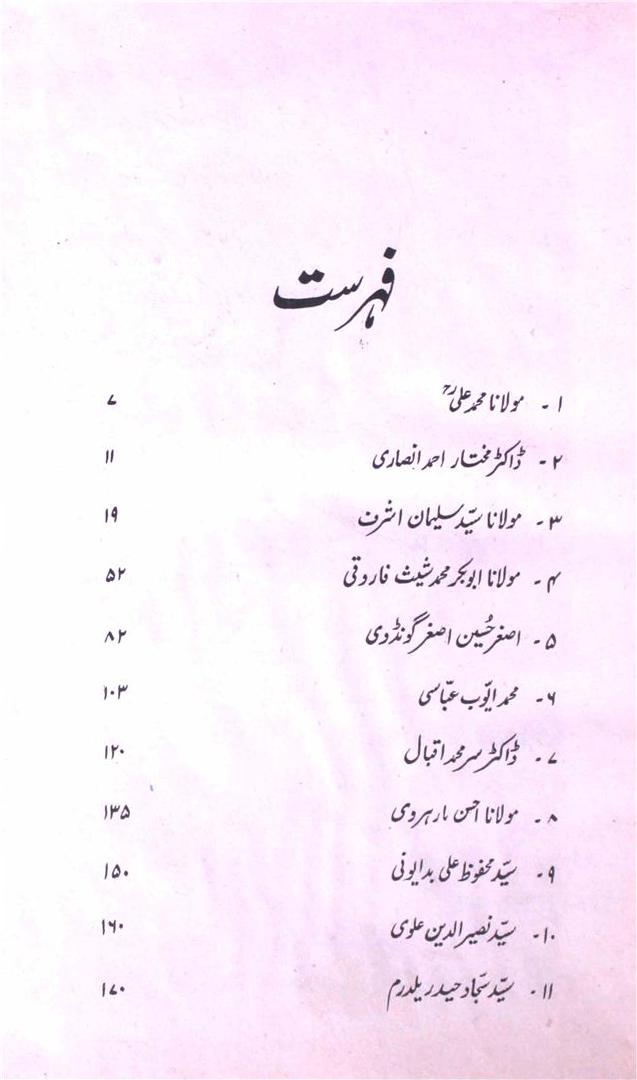 فہرست
۱ - مولانا محمد علیؒ ۷
۲ - ڈاکٹر مختار احمد انصاری ۱۱
۳ - مولانا سیّد سلیمان اشرف ۱۹
۴ - مولانا ابوبکر محمد شیث فاروقی ۵۲
۵ - اصغر حُسین اصغر گونڈوی ۸۲
۶ - محمد ایّوب عبّاسی ۱۰۳
۷ - ڈاکٹر سر محمد اقبال ۱۲۰
۸ - مولانا احسن مارہروی ۱۳۵
۹ - سیّد محفوظ علی بدایونی ۱۵۰
۱۰ - سیّد نصیر الدین علوی ۱۶۰
۱۱ - سیّد سجّاد حیدر یلدرم ۱۷۰